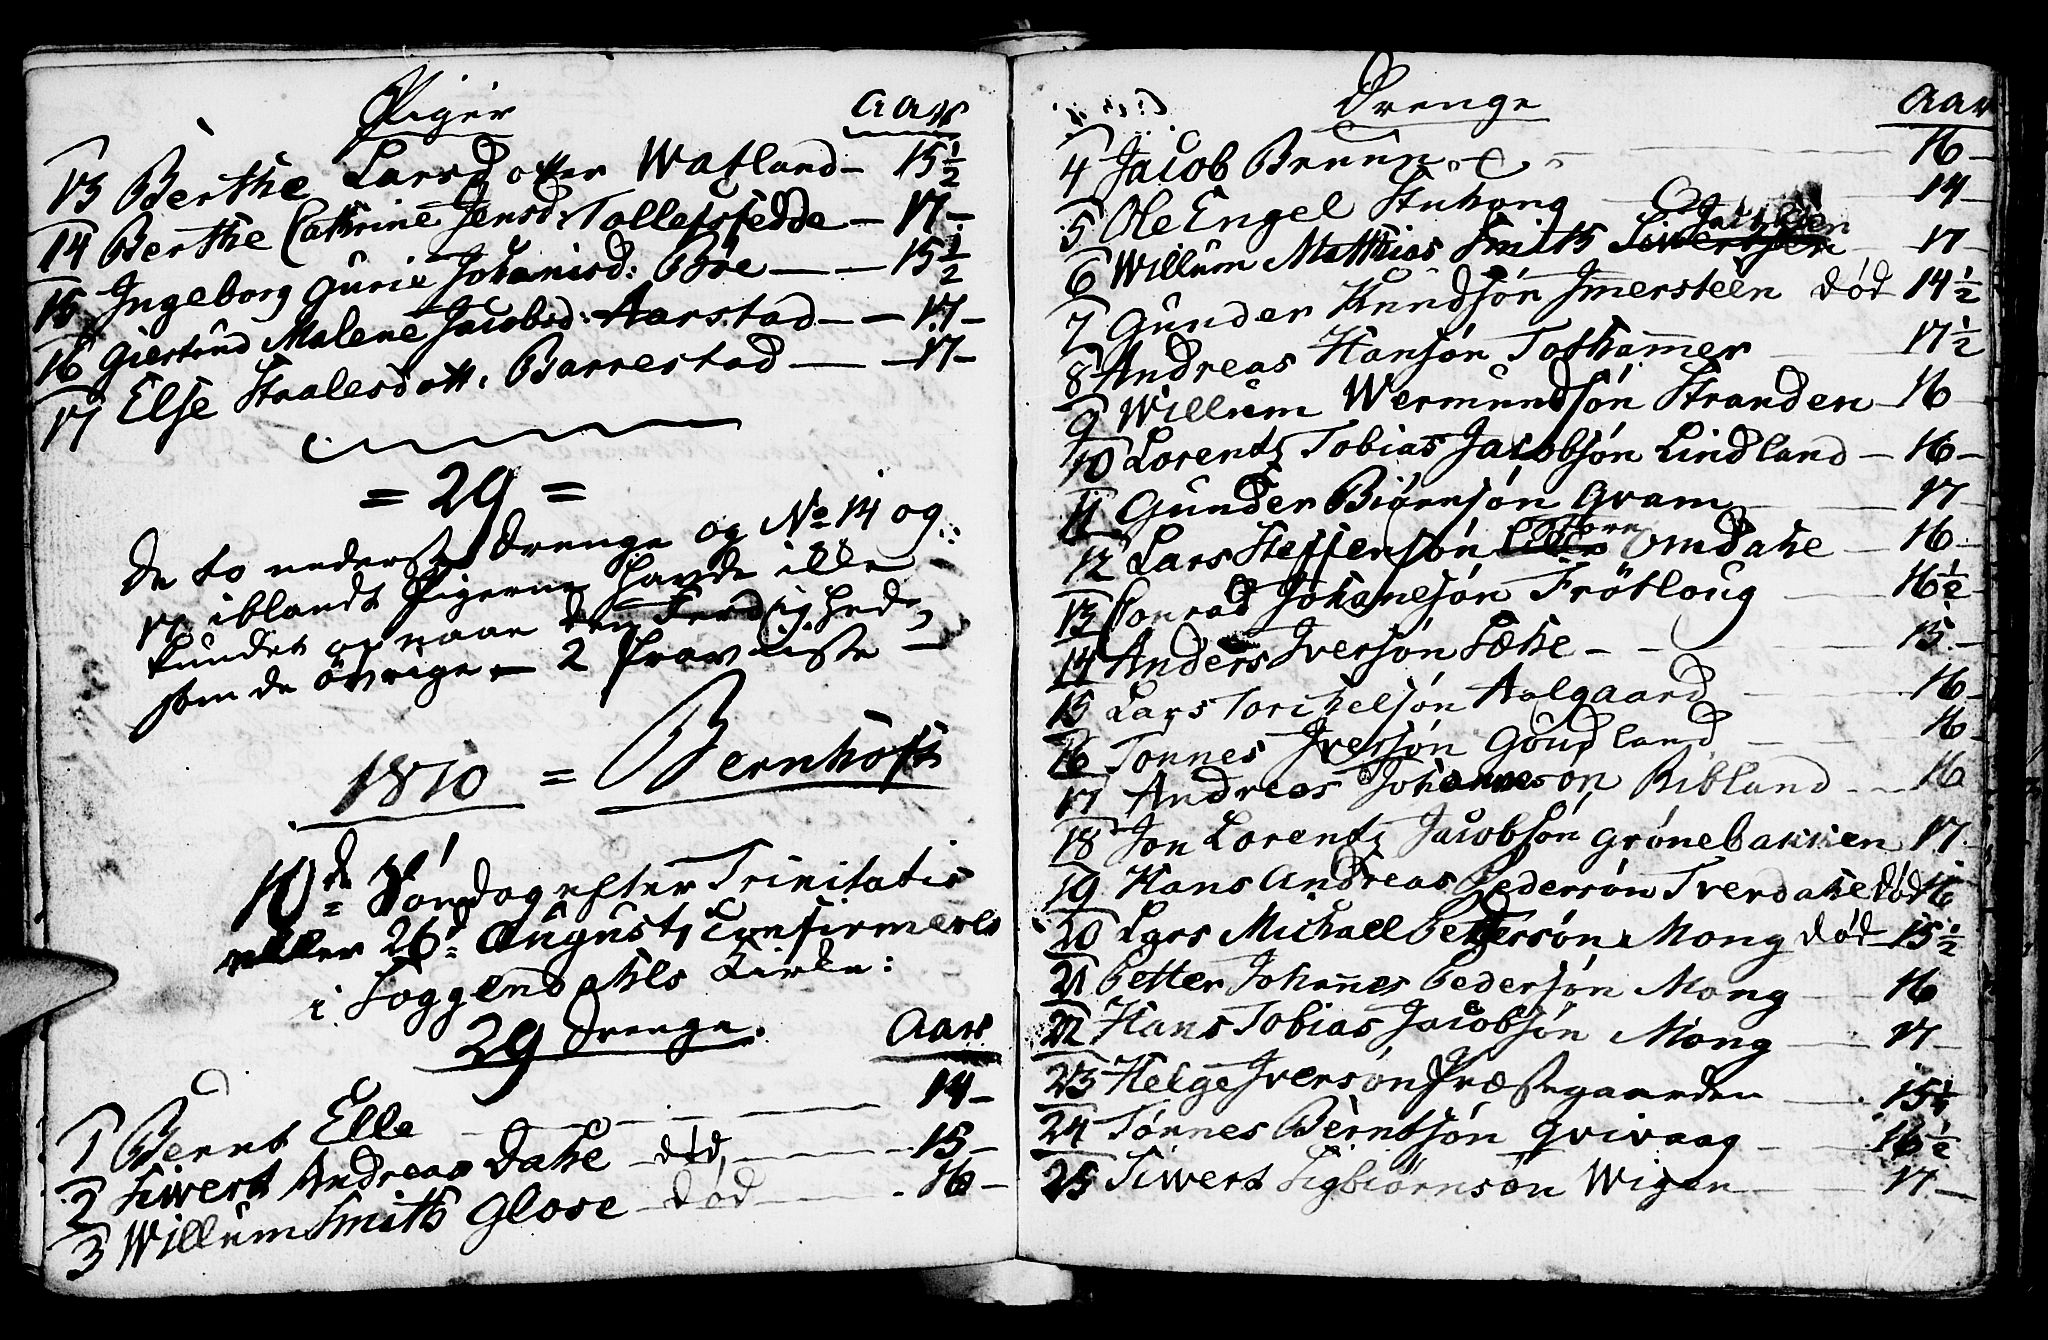 Piger Aar
13 Berthe Larsdotter Watland - 15 1/2
14 Berthe Cathrine Jensd: Tollefsfedde - 17 -
15 Ingeborg Gurie Johanisd: Bøe - - 15 1/2
16 Giertrud Malene Jacobsd: Aarstad - - 17 -
17 Else Staalesdatt. Barrestad - - 17 -
= 29 =
De to nederste Drenge og No 14 og
17 iblandt Pigerne havde ikke
kundet opnaae den Færdighed
som de övrige - 2
1810 = Bernhoft
10de Söndag efter Trinitatis
eller 26d August, Confirmerede
i Soggendahls Kirke:
29 Drenge. Aar
1 Bernt Elle - 14 -
2 Siwert Andreas Dahe død, - 15 -
3 Willum Smith Glose død - 16 -
Drenge Aar
4 Jacob Bruun - 16 -
5 Ole Engel Stuhoug - 14 -
6 Willum Matthias Smith - 17 -
7 Gunder Knudsøn Imersteen død 14 1/2
8 Andreas Hansøn Tothammer - 17 1/2
9 Willum Wermundsøn Stranden - 16
10 Lorentz Tobias Jacobsøn Lindland - 16 -
11 Gunder Biørnsøn Qvam - 17 -
12 Lars Steffensøn Omdahe - 16 -
13 Conrad Johanesøn Frötloug - 16 1/2
14 Anders Iversøn Sæhe - - 15 -
15 Lars Torchelsøn Aalgaard - 16 -
16 Tonnes Iversøn Goudland - 16 -
17 Andreas Johannesøn Ribland - - 16
18 Jon Lorentz Jacobsøn Grönebakken 17 -
19 Hans Andreas Pedersøn Tverdahe død 16
20 Lars Michael Pettersøn Mong død 15 1/2
21 Petter Johannes Pedersøn Mong - 16
22 Hans Tobias Jacobsøn Mong - 17 -
23 Helge Iversøn Præstegaarden - 15 1/4
24 Tønnes Berntsøn Qvivaag - 16 1/2
25 Siwert Sigbiørnsøn Wigen - 17 -